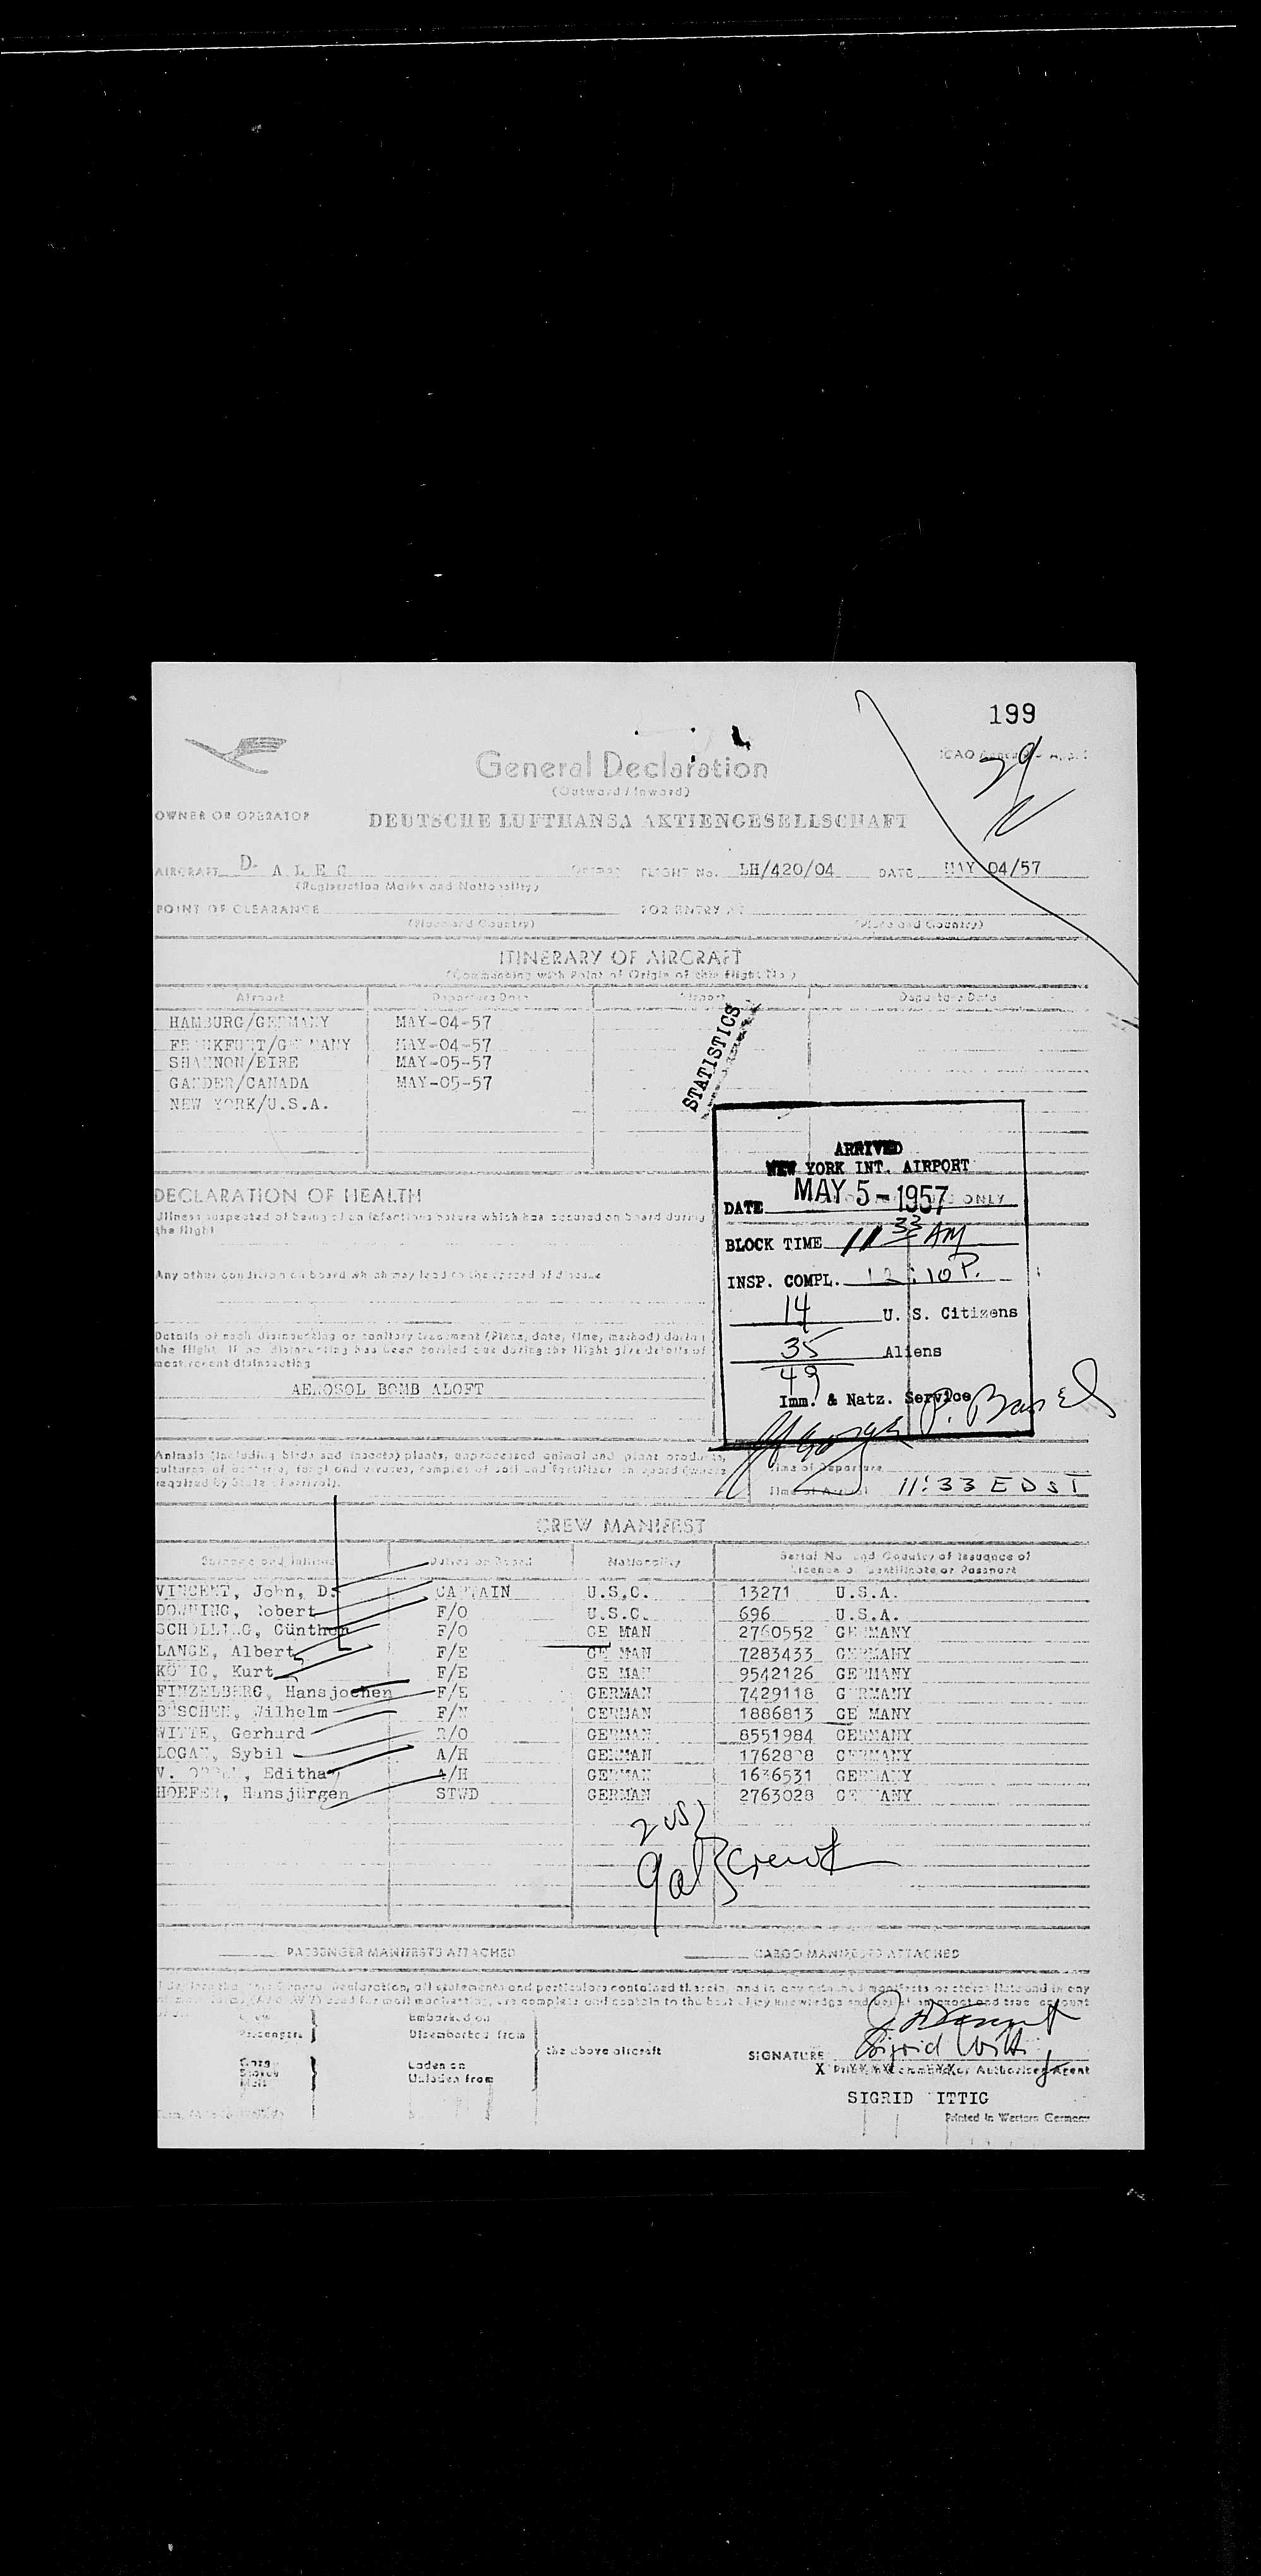 199
General Declaration
(Outward / Inward)
OWNER OR OPERATOR DEUTSCHE LUFTHANSA AKTIENGESELLSCHAFT
AIRCRAFT D- A L E C FLIGHT No. LH/420/04 DATE MAY 04/57
(Registration Marks and Nationality)
POINT OF CLEARANCE FOR ENTRY AT
(Place and Country) (Place and Country)
ITINERARY OF AIRCRAFT
(Commencing with Point of Origin of this Flight No.)
Airport Departure Date Airport Departure Date
HAMBURG/GERMANY MAY-04-57
FRANKFURT/GERMANY MAY-04-57
SHANNON/EIRE MAY-05-57
GANDER/CANADA MAY-05-57
NEW YORK/U.S.A.
STATISTICS
ARRIVED
NEW YORK INT. AIRPORT
DATE MAY 5-1957 ONLY
BLOCK TIME 11 33 AM
INSP. COMPL. 12:10 P.
14 U. S. Citizens
35 Aliens
49
Imm. & Natz. Service
DECLARATION OF HEALTH
Illness suspected of being of an infectious nature which has occured on board during
the flight
Any other condition on board which may lead to the spread of disease
Details of each disinsecting or sanitary treatment (Place, date, time, method) during
the flight. If no disinsecting has been carried out during the flight give details of
most recent disinsecting
AEROSOL BOMB ALOFT
Animals (including birds and insects) plants, unprocessed animal and plant products,
cultures of bacteria, fungi and viruses, samples of soil and fertilizer on board (where
required by State of arrival).
Time of Departure
Time of Arrival 11:33 EDST
CREW MANIFEST
Surname and Initials Duties on Board Nationality Serial No. and Country of Issuance of
Licence or Certificate or Passport
VINCENT, John, D. CAPTAIN U.S.C. 13271 U.S.A.
DOWNING, Robert F/O U.S.C. 696 U.S.A.
SCHOLLING, Günther F/O GERMAN 2760552 GERMANY
LANGE, Albert F/E GERMAN 7283433 GERMANY
KÖNIG, Kurt F/E GERMAN 9542126 GERMANY
FINZELBERG, Hansjochen F/E GERMAN 7429118 GERMANY
BÜSCHEN, Wilhelm F/N GERMAN 1886813 GERMANY
WITTE, Gerhard R/O GERMAN 8551984 GERMANY
LOGAN, Sybil A/H GERMAN GERMANY
V. Editha A/H GERMAN 1636531 GERMANY
HOEFER, Hansjürgen STWD GERMAN 2763028 GERMANY
2 US
9 al } crew
PASSENGER MANIFESTS ATTACHED CARGO MANIFESTS ATTACHED
General Declaration, all statements and particulars contained therein, and in any
are complete and contain to the best of my knowledge and belief an exact and true account
Crew Embarked on
Passengers Disembarked from
the above aircraft
Cargo Laden on
Stores Unladen from
Mail
SIGNATURE Sigrid Witti
Authorised Agent
SIGRID ITTIG
Printed in Western Germany